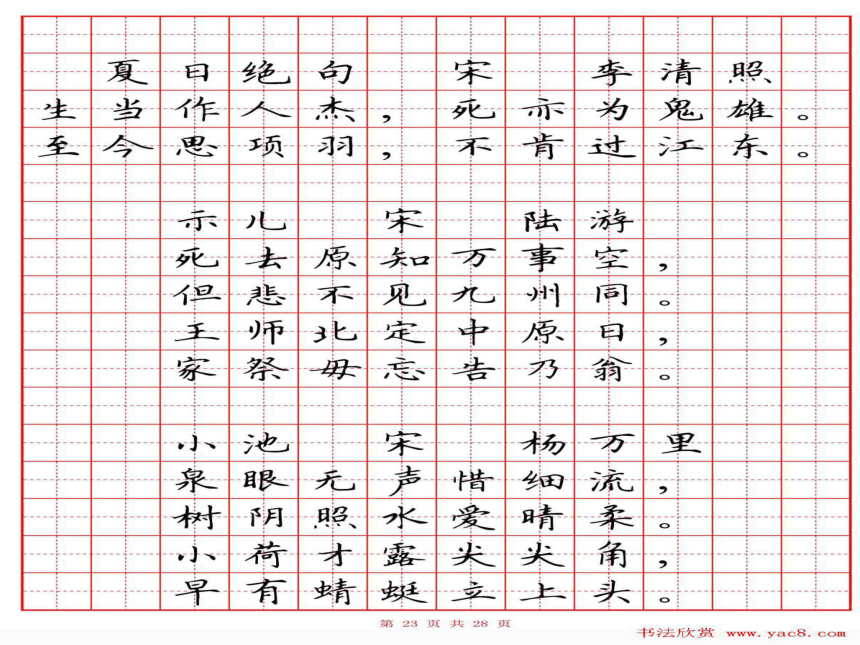 夏日绝句 宋 李清照
生当作人杰，死亦为鬼雄。
至今思项羽，不肯过江东。
示儿 宋 陆游
死去原知万事空，
但悲不见九州同。
王师北定中原日，
家祭毋忘告乃翁。
小池 宋 杨万里
泉眼无声惜细流，
树阴照水爱晴柔。
小荷才露尖尖角，
早有蜻蜓立上头。
第 23 页 共 28 页
书法欣赏 www.yac8.com